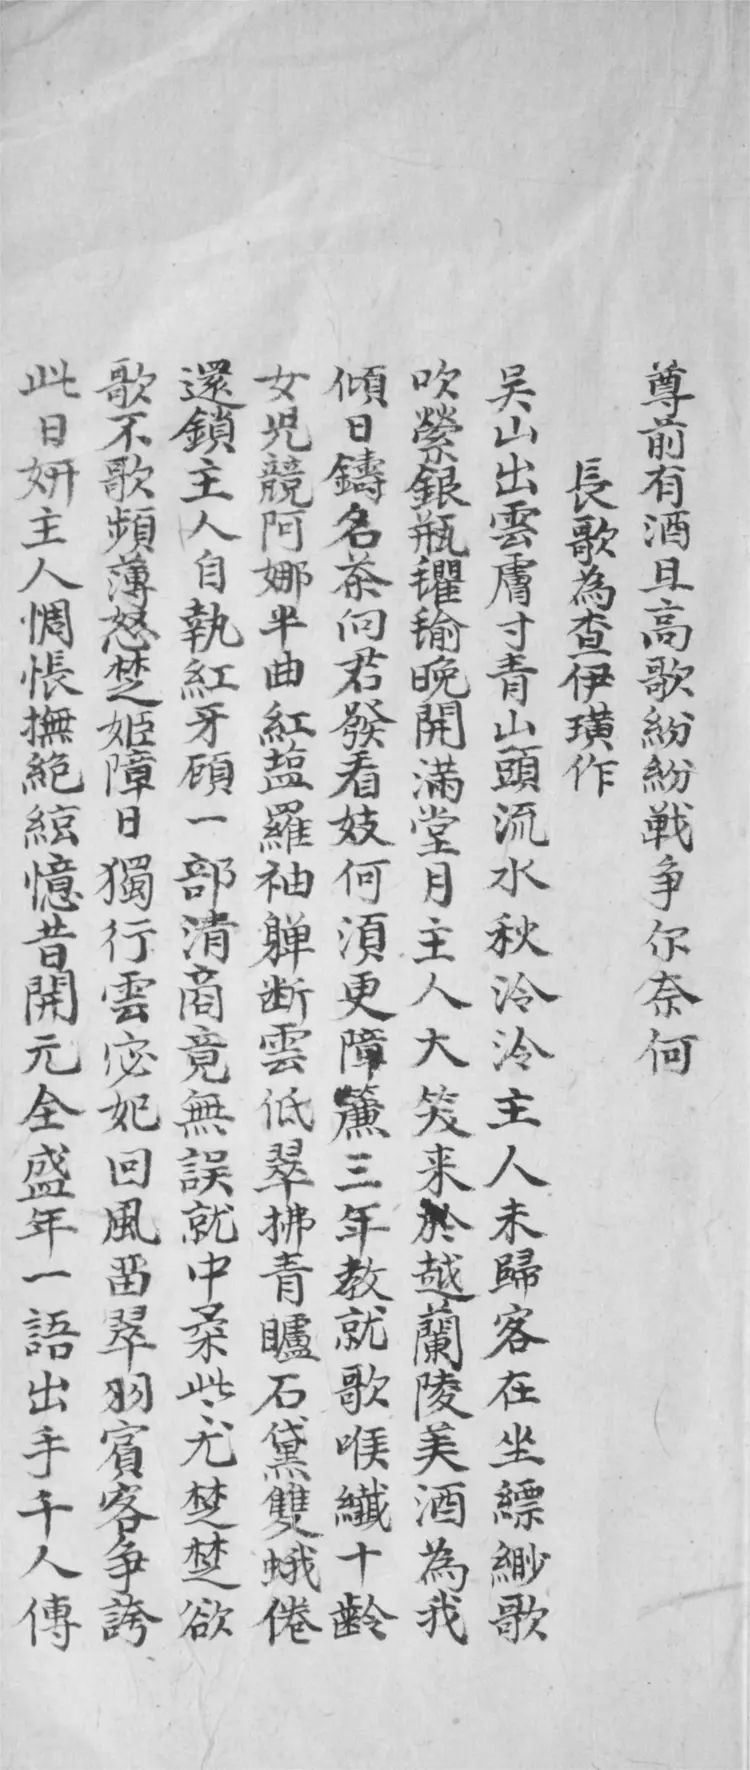 尊前有酒且高歌紛紛戦争尔奈何
長歌為查伊璜作
吴山出雲膚寸青山頭流水秋泠泠主人未歸客在坐縹緲歌
吹縈銀瓶氍毹晚開满堂月主人大笑来於越蘭陵美酒為我
傾日鑄名茶向君發看妓何須更障簾三年教就歌喉纖十齡
女兒競阿娜半曲紅藍羅袖軃断雲低翠拂青矑石黛雙蛾倦
還鎖主人自執紅牙顧一部清商竟無誤就中柔些尤楚楚欲
歌不歌頻薄怒楚姬障日獨行雲宓妃回風畱翠羽賓客争誇
此日妍主人惆悵撫絶絃憶昔開元全盛年一語出手千人傳